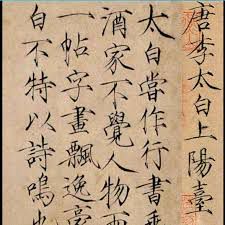 唐李太白上陽臺
太白嘗作行書乘
酒家不覺人物兩
一帖字畫飄逸豪
白不特以詩鳴也